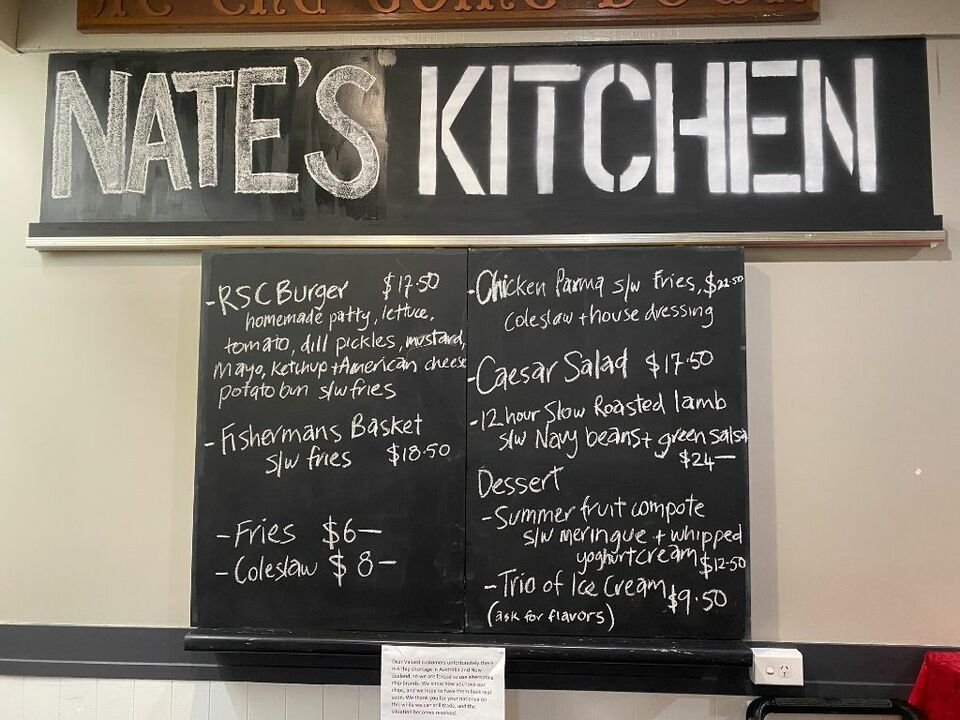 NATE'S KITCHEN
-RSC Burger $17.50
homemade patty, lettuce,
tomato, dill pickles, mustard,
mayo, ketchup + American cheese
potato bun s/w fries
-Fishermans Basket
s/w fries $18.50
-Fries $6—
-Coleslaw $8-
-Chicken Parma s/w Fries, $22.50
Coleslaw + house dressing
-Caesar Salad $17.50
-12 hour Slow Roasted lamb
s/w Navy beans + green salsa
$24—
Dessert
-Summer fruit compote
s/w meringue + whipped
yoghurt cream $12.50
-Trio of Ice Cream $9.50
(ask for flavors)
Dear Valued customers unfortunately there
is a chip shortage in Australia and New
Zealand, so we are forced to use alternative
chip brands. We know how you love our
chips, and we hope to have them back real
soon. We thank you for your patience on
this while we can still trade, and the
situation becomes resolved.